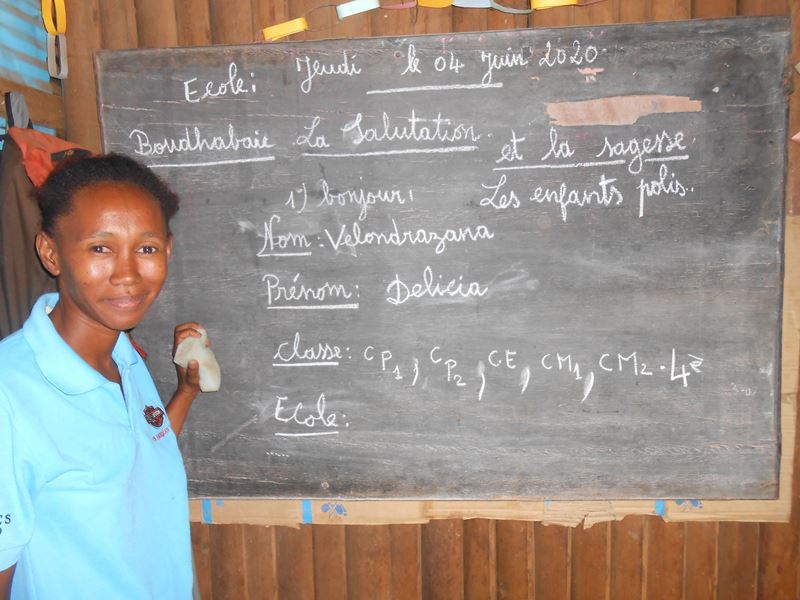 Ecole: Jeudi le 04 Juin 2020
Boudhabaie La Salutation et la sagesse.
1°) bonjour, Les enfants polis.
Nom: Velondrazana
Prénom: Delicia
classe: CP1, CP2, CE, CM1, CM2. 4è
Ecole: